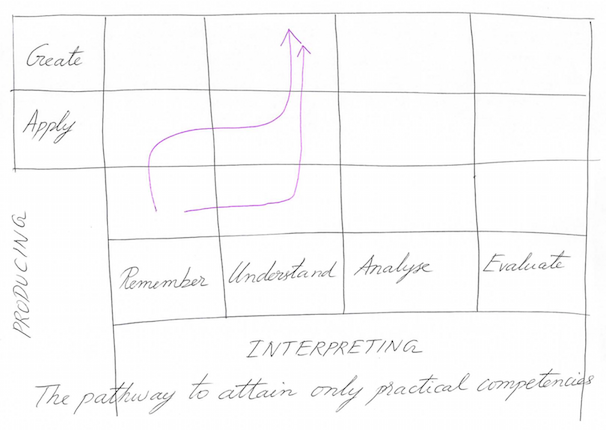 Create
Apply
PRODUCING
Remember Understand Analyse Evaluate
INTERPRETING
The pathway to attain only practical competencies